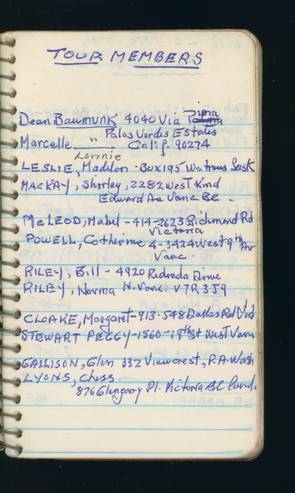 TOUR MEMBERS
Dean Baumunk 4040 Via Pima
Palos Verdis Estates
Marcelle " Calif 90274
Lonnie
LESLIE, Maddon - Box 195 Watrous Sask
MACKAY, Shirley, 2282 West Kind
Edward Ave Vanc BC
McLEOD, Mabel - 414-2623 Richmond Rd
Victoria
POWELL, Catherine 4-3424 West 9th Av
Vanc.
RILEY, Bill - 4920 Redonda Drive
RILEY, Norma N. Vanc. V7R 3J9
CLOAKE, Margaret - 913-548 Dallas Rd Vict
STEWART PEGGY - 1560 - 19th St West Vanc
GALLISON, Glen 332 Viewcrest, P.A. Wash
LYONS, Chess.
876 Glengary Pl. Victoria BC